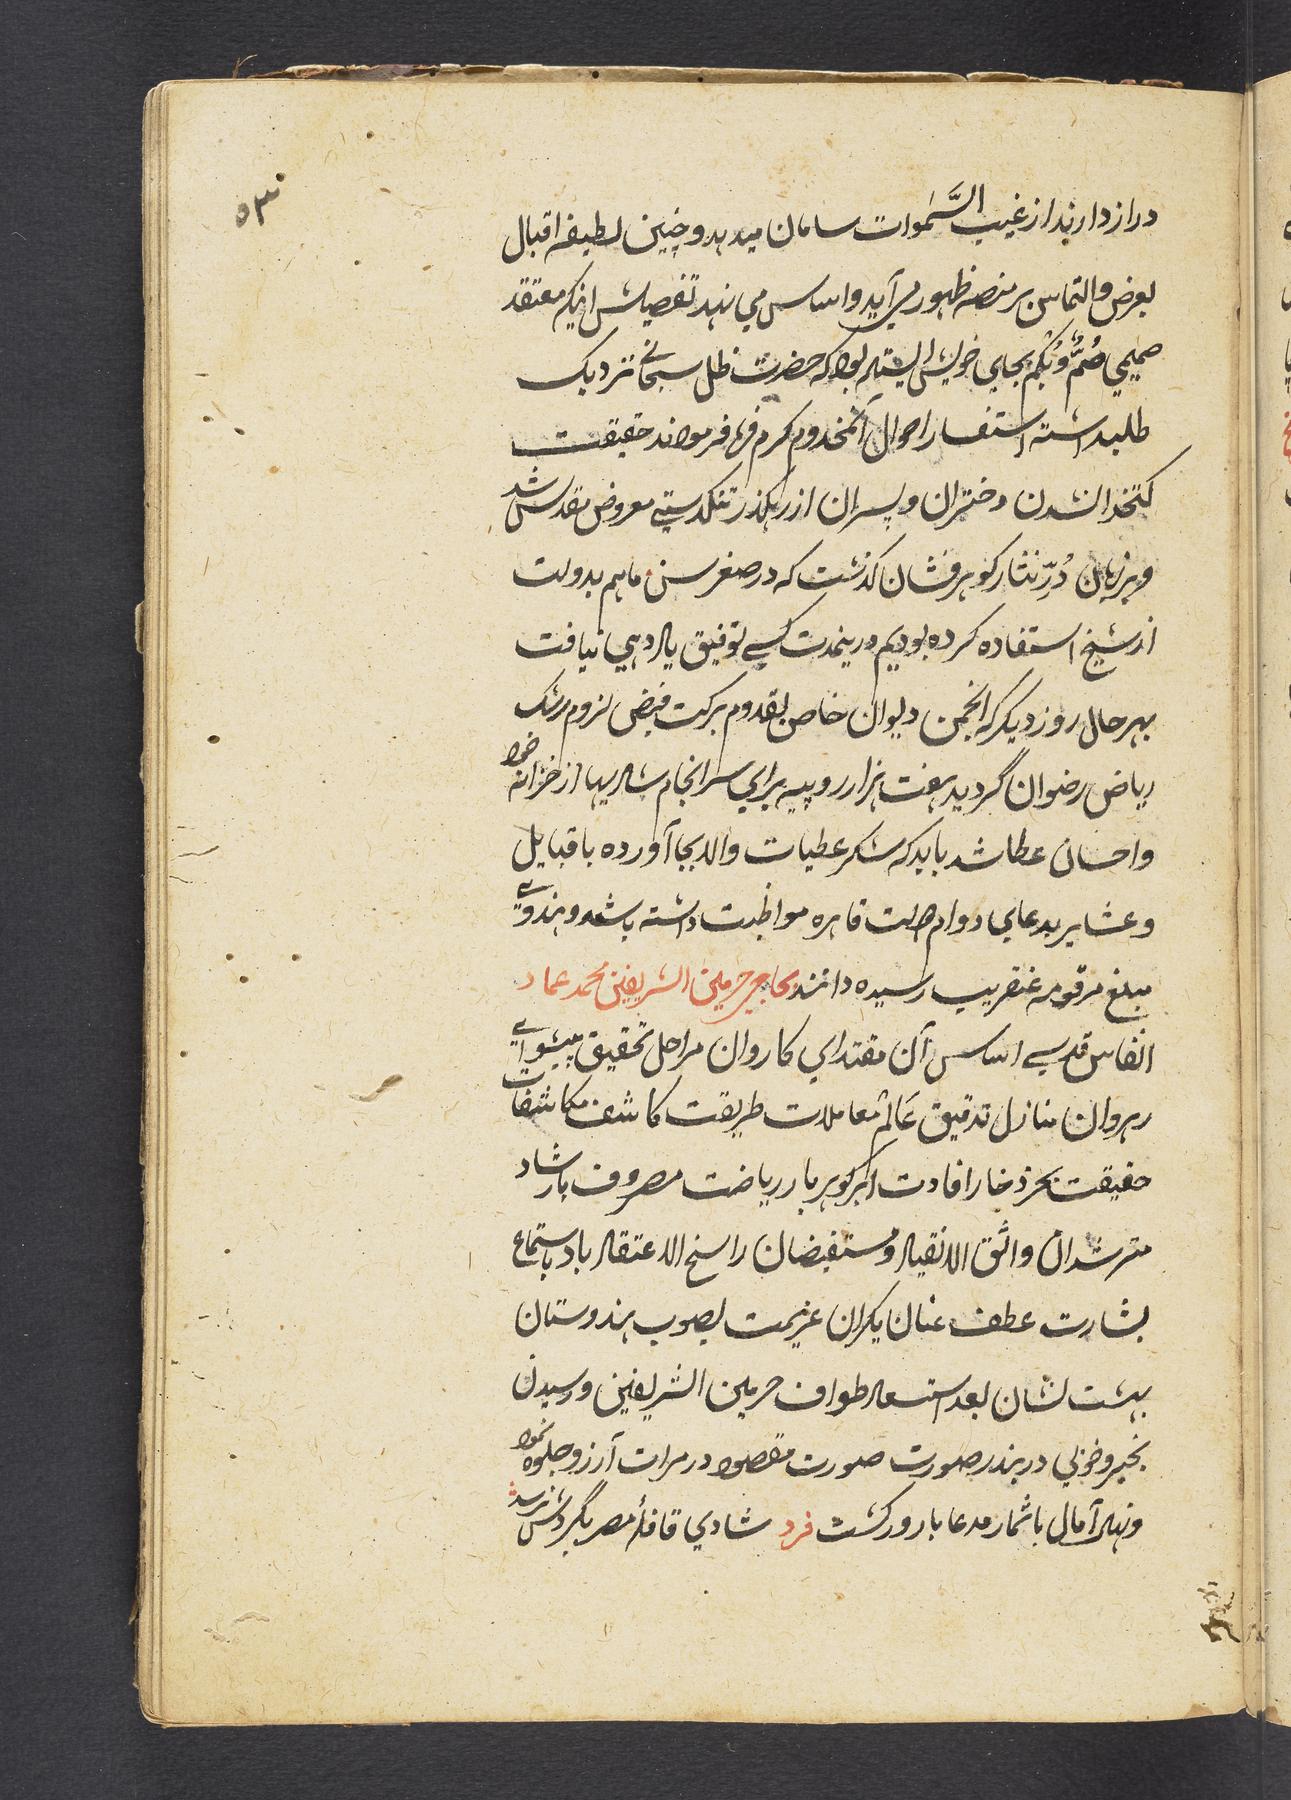 ۵۳
دراز دارند از غیب السَّموات سامان میدهد و چنین لطیفه اقبال
بعرض و التماس بر منصه ظهور می آید و اساس می نهد تفصیلش اینکه معتقد
صمیمی صُمٌّ وُبُکم بجای خویش ایستاده بود که حضرت ظل سبحانی نزدیک
طلبداشته استفسار احوال آنمخدوم مکرم فرمودند حقیقت
کتخدا نشدن دختران و پسران از رهگذر تنکدستی معروض مقدس شد
و بر زبان دُرّ نثار کوهرفشان کذشت که در صغر سن ما هم بدولت
از شیخ استفاده کرده بودیم درینمدت کسی توفیق یاد دهی نیافت
بهر حال روز دیگر که انجمن دیوان خاص بقدوم برکت فیض لزوم رشک
ریاض رضوان گردید هفت هزار روپیه برای سرانجام شادیها از خزانه جود
و احسان عطا شد باید که شکر عطیات والا بجا آورده با قبایل
و عشایر بدعای دوام دولت قاهره مواظبت داشته باشد و هندوی
مبلغ مرقومه عنقریب رسیده دانند بحاجی حرمین الشریفین محمد عماد
انفاس قدسی اساس آن مقتدای کاروان مراحل تحقیق پیشوای
رهروان منازل تدقیق عَالم معاملات طریقت کاشف مکاشفات
حقیقت بحر ذخار افادت ابر کوهربار ریاضت مصروف بارشاد
مترشدان واثق الانقیاد و مستفیضان راسخ الاعتقاد باد باستماع
بشارت عطف عنان یکران عزیمت بصوب هندوستان
بهشت نشان بعد استسعاد طواف حرمین الشریفین و رسیدن
بخیر و خوبی در بندر صورت صورت مقصود در مرات آرزو جلوه نمود
و نهال آمال باثمار مدعا بارور کشت فرد شادی قافلهٔ مصر بگردش نرسد